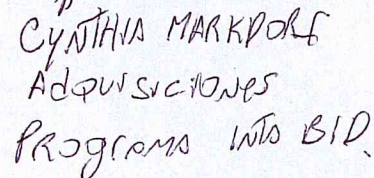 CYNTHIA MARKDORF
Adquisiciones
PROgrama INTA BID.